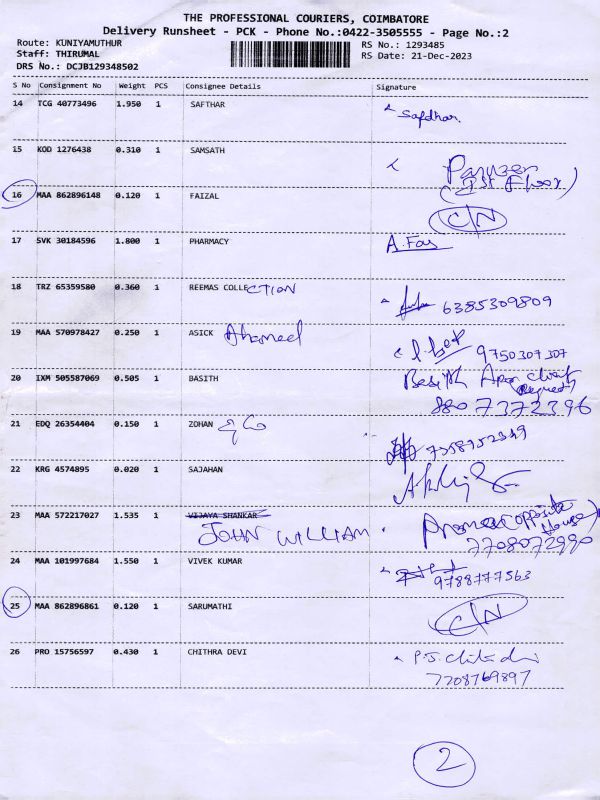 THE PROFESSIONAL COURIERS, COIMBATORE
Delivery Runsheet - PCK - Phone No.:0422-3505555 - Page No.:2
Route: KUNIYAMUTHUR RS No.: 1293485
Staff: THIRUMAL RS Date: 21-Dec-2023
DRS No.: DCJB129348502
S No Consignment No Weight PCS Consignee Details Signature
14 TCG 40773496 1.950 1 SAFTHAR Safdhar.
15 KOD 1276438 0.310 1 SAMSATH
(1st Floor)
16 MAA 862896148 0.120 1 FAIZAL C/N
17 SVK 30184596 1.800 1 PHARMACY A. Fas
18 TRZ 65359580 0.360 1 REEMAS COLLECTION 6385309809
19 MAA 570978427 0.250 1 ASICK Ahamed 9750307307
20 IXM 505587069 0.505 1 BASITH Basith
8807372396
21 EDQ 26354404 0.150 1 ZOHAN 7358952349
22 KRG 4574895 0.020 1 SAJAHAN
23 MAA 572217027 1.535 1 VIJAYA SHANKAR
JOHN WILLIAM (opposite House)
7708072990
24 MAA 101997684 1.550 1 VIVEK KUMAR
9788777563
25 MAA 862896861 0.120 1 SARUMATHI C/N
26 PRO 15756597 0.430 1 CHITHRA DEVI
7708769897
2